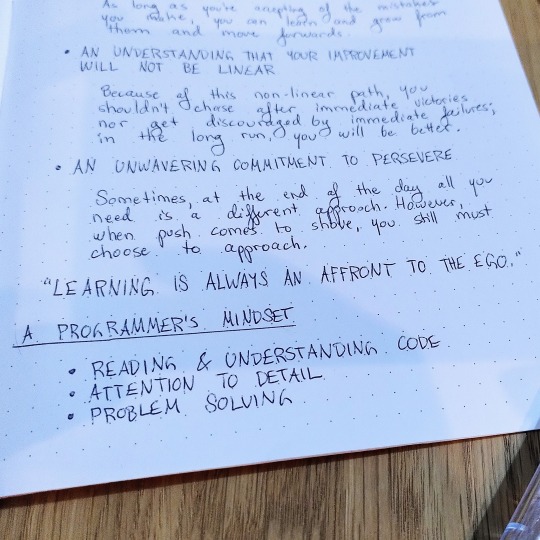 As long as you're accepting of the mistakes
you make, you can learn and grow from
them and move forwards.
• AN UNDERSTANDING THAT YOUR IMPROVEMENT
WILL NOT BE LINEAR
Because of this non-linear path, you
shouldn't chase after immediate victories
nor get discouraged by immediate failures;
in the long run, you will be better.
• AN UNWAVERING COMMITMENT TO PERSEVERE
Sometimes, at the end of the day all you
need is a different approach. However,
when push comes to shove, you still must
choose to approach.
"LEARNING IS ALWAYS AN AFFRONT TO THE EGO."
A PROGRAMMER'S MINDSET
• READING & UNDERSTANDING CODE
• ATTENTION TO DETAIL
• PROBLEM SOLVING